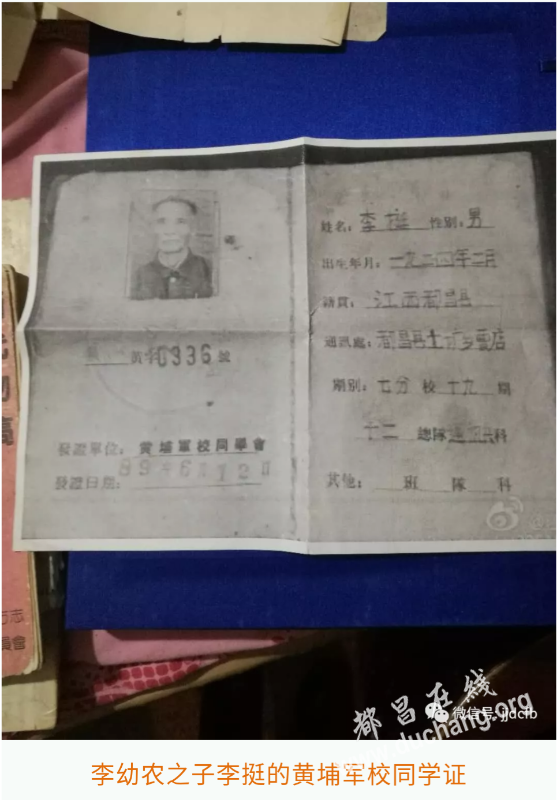 姓名：李挺 性别：男
出生年月：一九二四年二月
籍貫：江西都昌县
通訊處：都昌县土
期别：七分校十九期
十二總隊 科
其他： 班 隊 科
黄 10336 號
發證單位：黄埔軍校同學會
發證日期：
都昌在线
微信号: jjdcfb
duchang.org
李幼农之子李挺的黄埔军校同学证